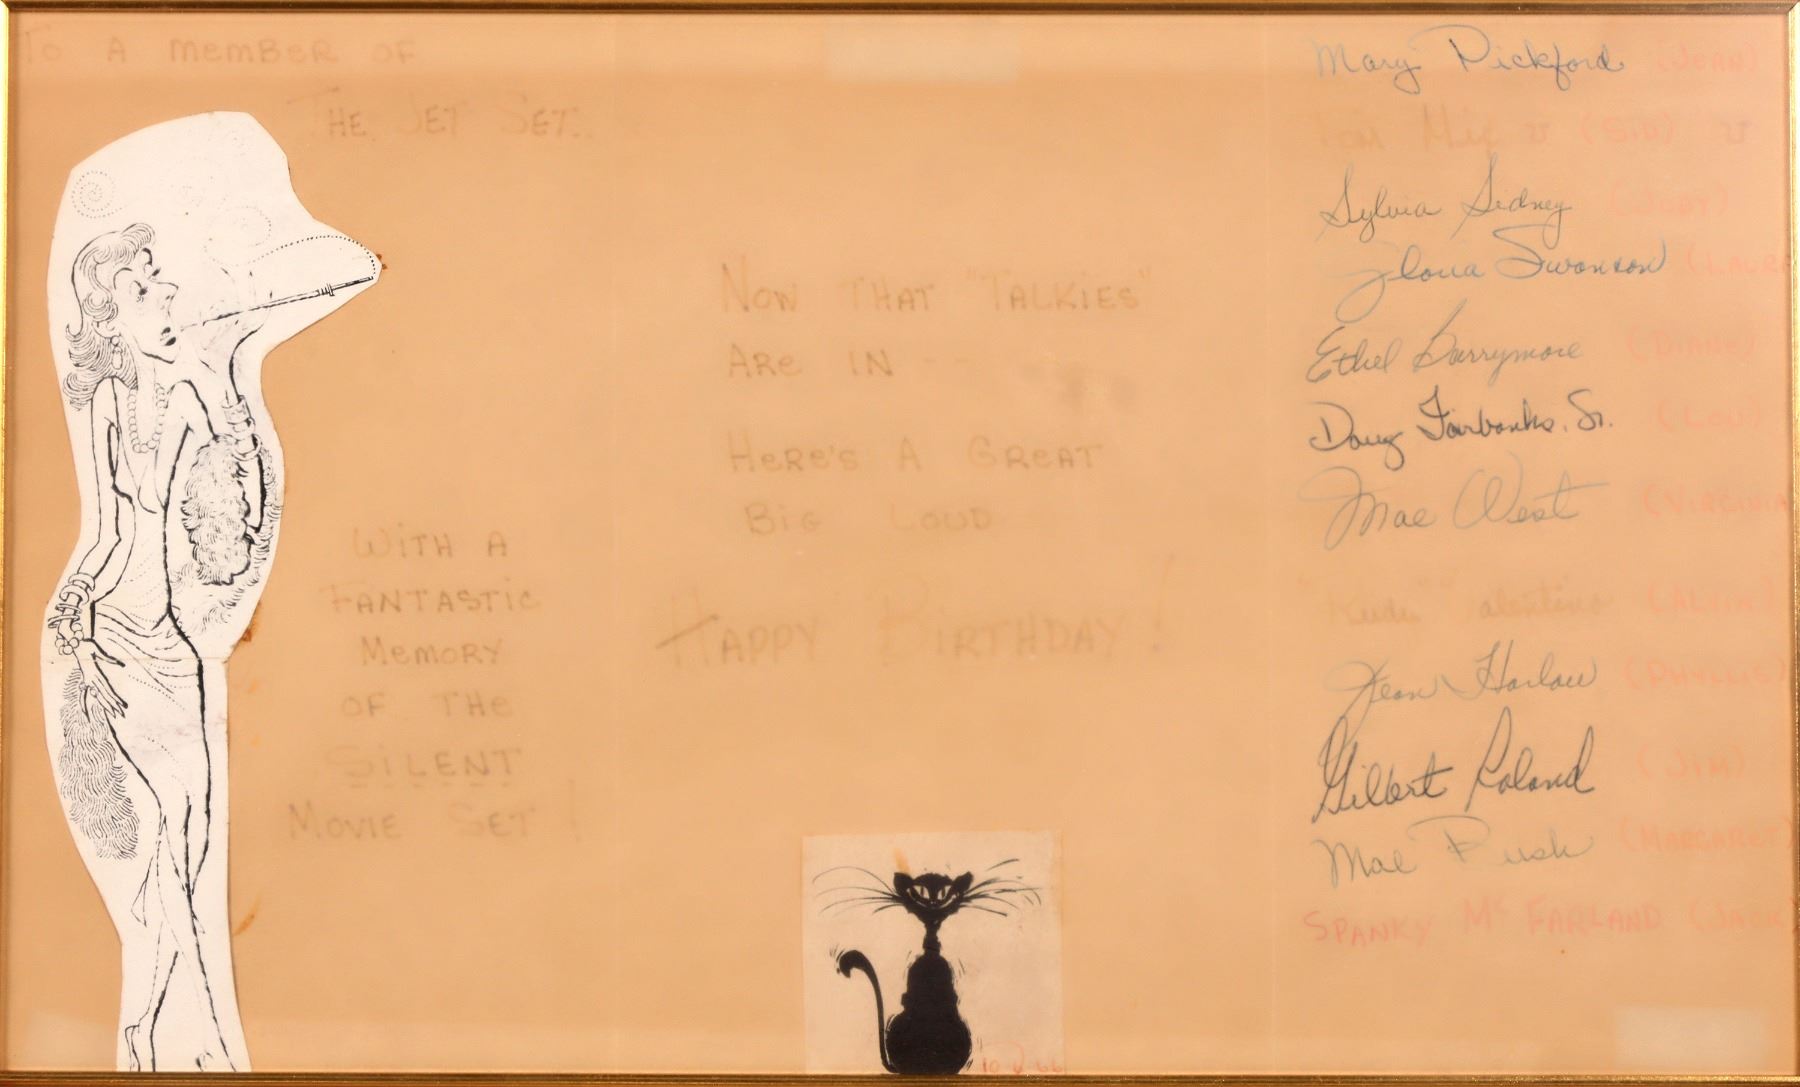 To A Member of
The Jet Set..
With A
Fantastic
Memory
of The
Silent
Movie Set!
Now That "Talkies"
Are in - -
Here's A Great
Big Loud
Happy Birthday!
Mary Pickford (Jean)
Tom Mix (Sid)
Sylvia Sidney (Judy)
Gloria Swanson
Ethel Barrymore (Diane)
Doug Fairbanks, Sr. (Lou)
Mae West (Virginia
"Rudy" Valentino (Alvin)
Jean Harlow (Phyllis)
Gilbert Roland (Jim)
Mae Bush (Margaret)
Spanky McFarland (Jack)